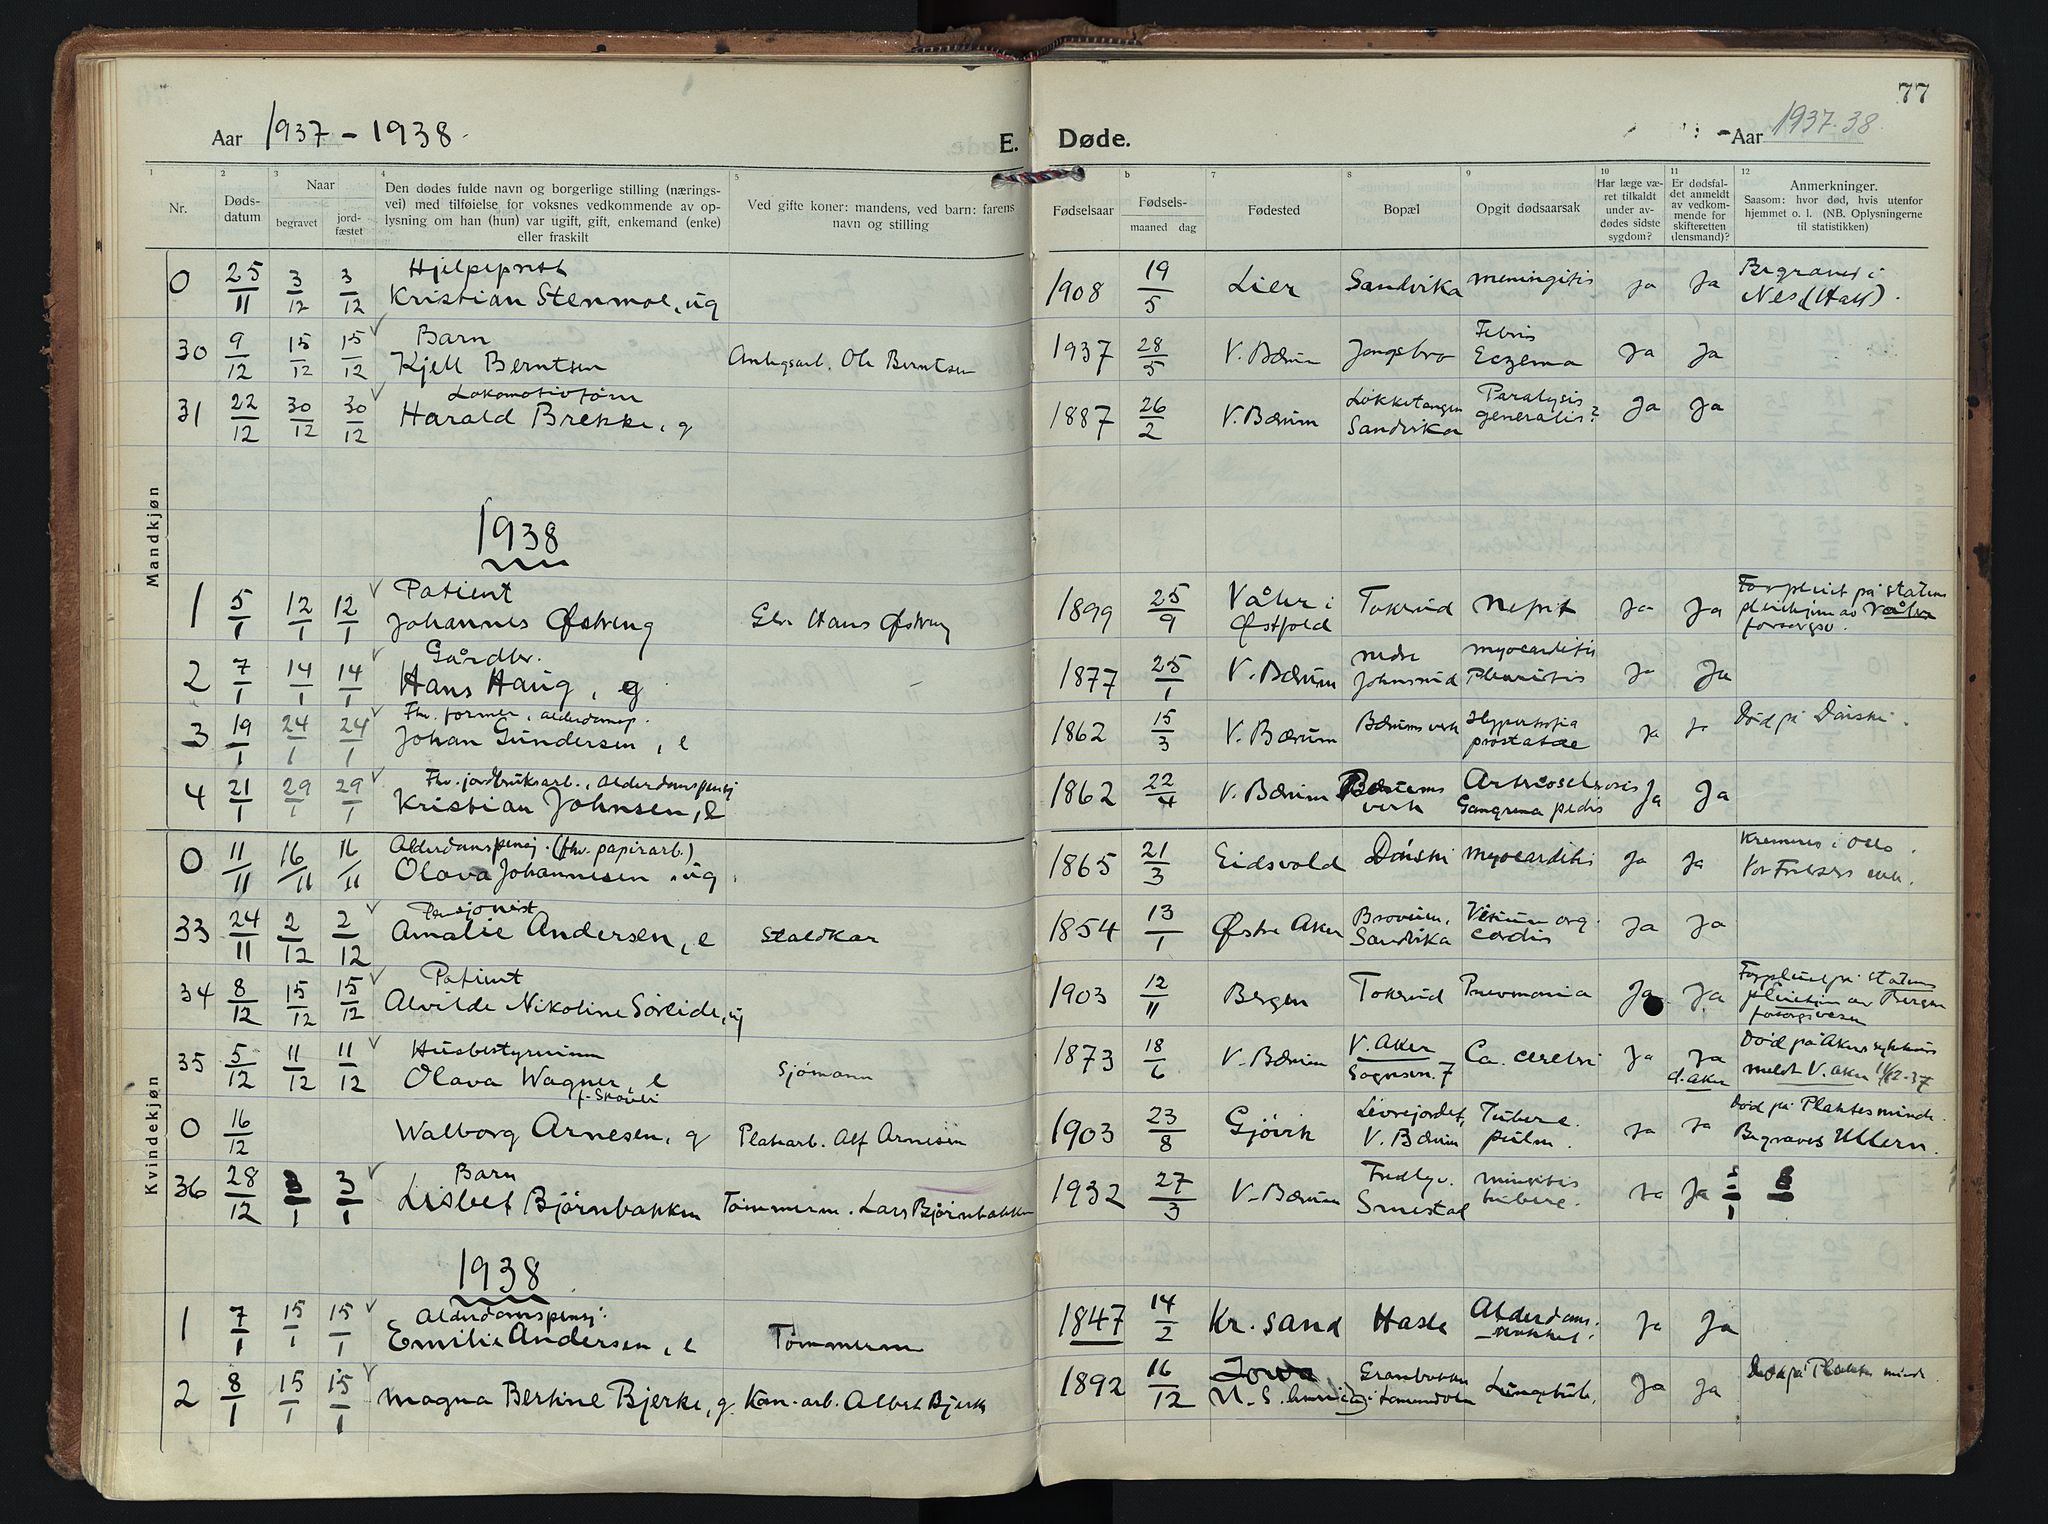 77
Aar 1937-1938.
E. Døde.
Aar 1937-38.
1 2 3 4 5 6 7 8 9 10 11 12
Nr.
Døds-
datum
Naar
begravet
jord-
fæstet
Den dødes fulde navn og borgerlige stilling (nærings-
vei) med tilføielse for voksnes vedkommende av op-
lysning om han (hun) var ugift, gift, enkemand (enke)
eller fraskilt
Ved gifte koner: mandens, ved barn: farens
navn og stilling
Fødselsaar
Fødsels-
maaned dag
Fødested
Bopæl
Opgit dødsaarsak
Har læge væ-
ret tilkaldt
under av-
dødes sidste
sygdom?
Er dødsfal-
det anmeldt
av vedkom-
mende for
skifteretten
(lensmand)?
Anmerkninger.
Saasom: hvor død, hvis utenfor
hjemmet o. l. (NB. Oplysningerne
til statistikken)
Mandkjøn
0 25/11 3/12 3/12 Hjelpeprest
Kristian Stenmoe, ug 1908 19/5 Lier Sandvika meningitis ja Ja Begraves i
Nes (Hall).
30 9/12 15/12 15/12 Barn
Kjell Berntsen Anlegsarb. Ole Berntsen 1937 28/5 V. Bærum Jongsbro Febris
Eczema Ja Ja
31 22/12 30/12 30/12 Lokomotivfører
Harald Brekke, g 1887 26/2 V. Bærum Løkketangen
Sandvika Paralysis
generalis? Ja Ja
1938
1 5/1 12/1 12/1 Patient
Johannes Østreng Hans Østreng 1899 25/9 Våler i
Østfold Tokerud Nefrit Ja Ja Forpleiet på statens
pleiehjem av Våler
forsorgsv.
2 7/1 14/1 14/1 Gårdbr.
Hans Haug, g 1877 25/1 V. Bærum nedre
Johnsrud myocarditis
Pleuritis Ja Ja
3 19/1 24/1 24/1 Fhv. former, alderdomsp.
Johan Gundersen, e 1862 15/3 V. Bærum Bærums verk Hypertrofia
prostatae Ja Ja Død på Dønski.
4 21/1 29/1 29/1 Fhv. jordbruksarb., Alderdomspensj
Kristian Johnsen, e 1862 22/4 V. Bærum Bærums
verk Artriosclerosis
Gangrena pedis Ja Ja
Kvindekjøn
0 11/11 16/11 16/11 Alderdomspensj. (fhv. papirarb.)
Olava Johannesen, ug. 1865 21/3 Eidsvold Dønski myocarditis Ja Ja Kremeres i Oslo.
33 24/11 2/12 2/12 Pensjonist
Amalie Andersen, e Staldkar 1854 13/1 Østre Aker Sandvika Vitium org.
cordis Ja Ja
34 8/12 15/12 15/12 Patient
Alvilde Nikoline Sørlide, ug 1903 12/11 Bergen Tokerud Pnevmonia Ja Ja Forpleiet på statens
pleiehjem av Bergen
forsorgsvesen
35 5/12 11/12 11/12 Husbestyrerinne
Olava Wagner, e
f. Skouli Sjømann 1873 18/6 V. Bærum V. Aker
Sognsvn. 7 Ca. cerebri Ja Ja
d. Aker Død på Akers sykehus
meldt V. Aker 11/12-37
0 16/12 Walborg Arnesen, g Platearb. Alf Arnesen 1903 23/8 Gjøvik Levrejordet,
V. Bærum Tuberc.
pulm. Ja Ja Død på Plahtes minde.
Begraves Ullern.
36 28/12 3/1 3/1 Barn
Lisbet Bjørnbakken Tømmerm. Lars Bjørnbakken 1932 27/3 V. Bærum Smestad meningitis
tuberc. Ja Ja
1938
1 7/1 15/1 15/1 Alderdomspensj.
Emilie Andersen, e Tømmerm 1847 14/2 Kr.sand Hasle Alderdoms-
svakhet. Ja Ja
2 8/1 15/1 15/1 Magna Bertine Bjerke, g. Kom. arb. Albert Bjerke 1892 16/12 Iowa
U. S. Amerika Granbakken
i Lommedalen Lungetub. Ja Ja Død på Plahtes minde.